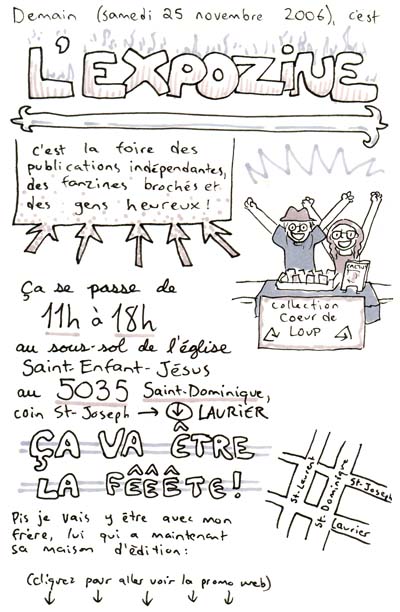 Demain (samedi 25 novembre 2006), c'est
L'EXPOZINE
c'est la foire des
publications indépendantes,
des fanzines brochés et
des gens heureux !
Ça se passe de
11h à 18h
au sous-sol de l'église
Saint-Enfant-Jésus
au 5035 Saint-Dominique,
coin St-Joseph → LAURIER
CACTUS
Collection
Coeur de
LOUP
ÇA VA ÊTRE
LA FÊÊÊTE !
St-Laurent
St-Dominique
St-Joseph
Laurier
Pis je vais y être avec mon
frère, lui qui a maintenant
sa maison d'édition :
(cliquez pour aller voir la promo web)